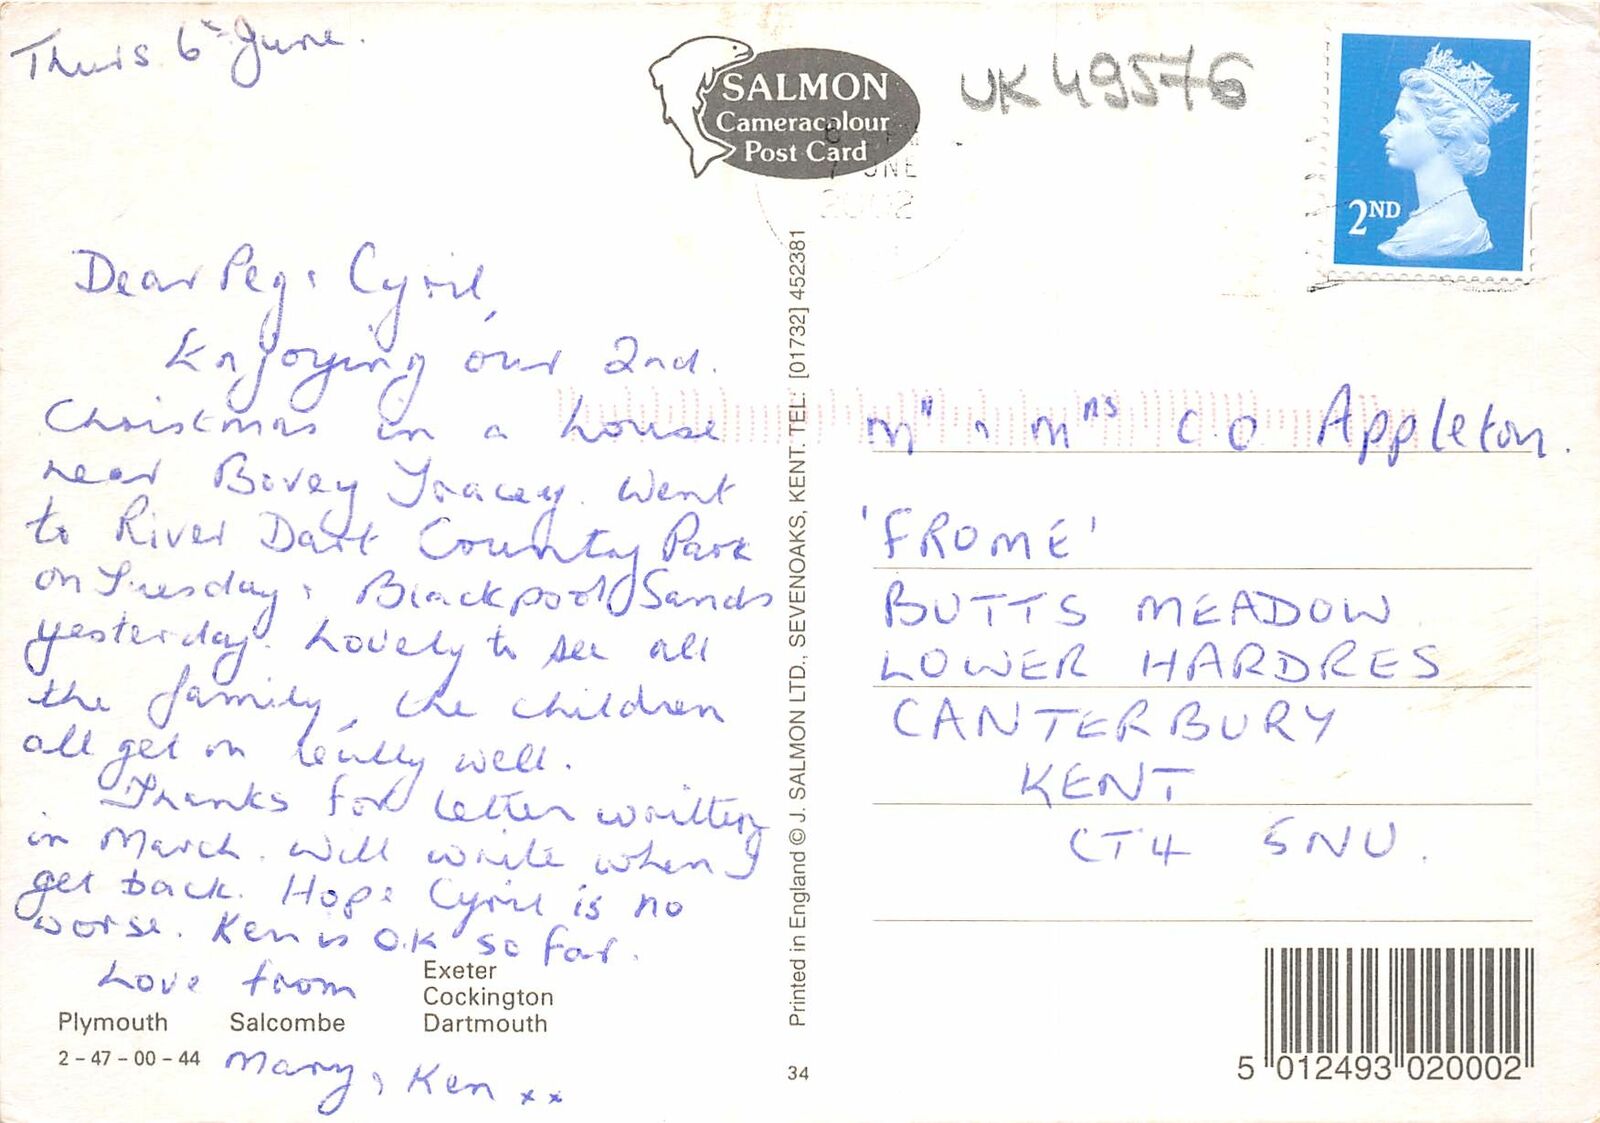 Thurs 6th June.
SALMON
Cameracolour
Post Card
UK 49576
7 JUNE
2002
2ND
Dear Peg & Cyril,
Enjoying our 2nd.
Christmas in a house
near Bovey Tracey. Went
to River Dart Country Park
on Tuesday & Blackpool Sands
yesterday. Lovely to see all
the family, the children
all get on really well.
Thanks for letter written
in March. Will write when I
get back. Hope Cyril is no
worse. Ken is O.K so far.
Love from
Mary & Ken xx
Exeter
Cockington
Plymouth Salcombe Dartmouth
2-47-00-44
Printed in England © J. SALMON LTD., SEVENOAKS, KENT. TEL: [01732] 452381
34
Mr & Mrs C.O Appleton.
'FROME'
BUTTS MEADOW
LOWER HARDRES
CANTERBURY
KENT
CT4 5NU.
5 012493 020002